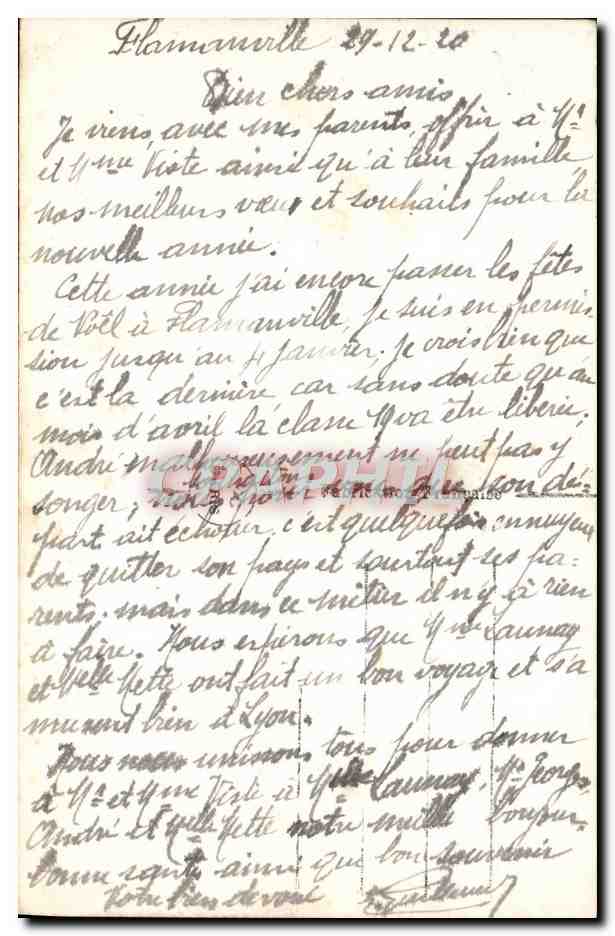 Flamanville 29-12-20
Bien chers amis
Je viens, avec mes parents, offrir à Mr
et Mme Viste ainsi qu'à leur famille
nos meilleurs vœux et souhaits pour la
nouvelle année.
Cette année j'ai encore passer les fêtes
de Noël à Flamanville, je suis en permis-
sion jusqu'au 4 janvier. je crois bien que
c'est la dernière car sans doute qu'au
mois d'avril la classe 19 va être liberée.
André malheureusement ne peut pas y
songer, que son dé-
Fabrication Française
part ait échouer. c'est quelquefois ennuyeux
de quitter son pays et sourtout ses pa-
rents. mais dans ce métier il n'y a rien
à faire. Nous espérons que Mme Launay
et Melle Yette ont fait un bon voyage et s'a
musent bien à Lyon.
Nous nous unissons tous pour donner
à Mr et Mme Viste à Launay, Mr Georges,
André et Melle Yette notre meille bonjour-
bonne santé ainsi que bon souvenir
Votre bien devoué
CPARAMA.COM